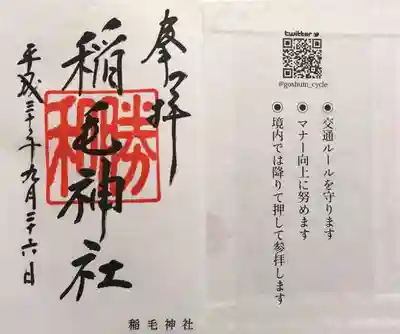 奉拝
稲毛神社
勝
平成三十年九月二十六日
稲毛神社
twitter
@goshuin_cycle
◉交通ルールを守ります
◉マナー向上に努めます
◉境内では降りて押して参拝します